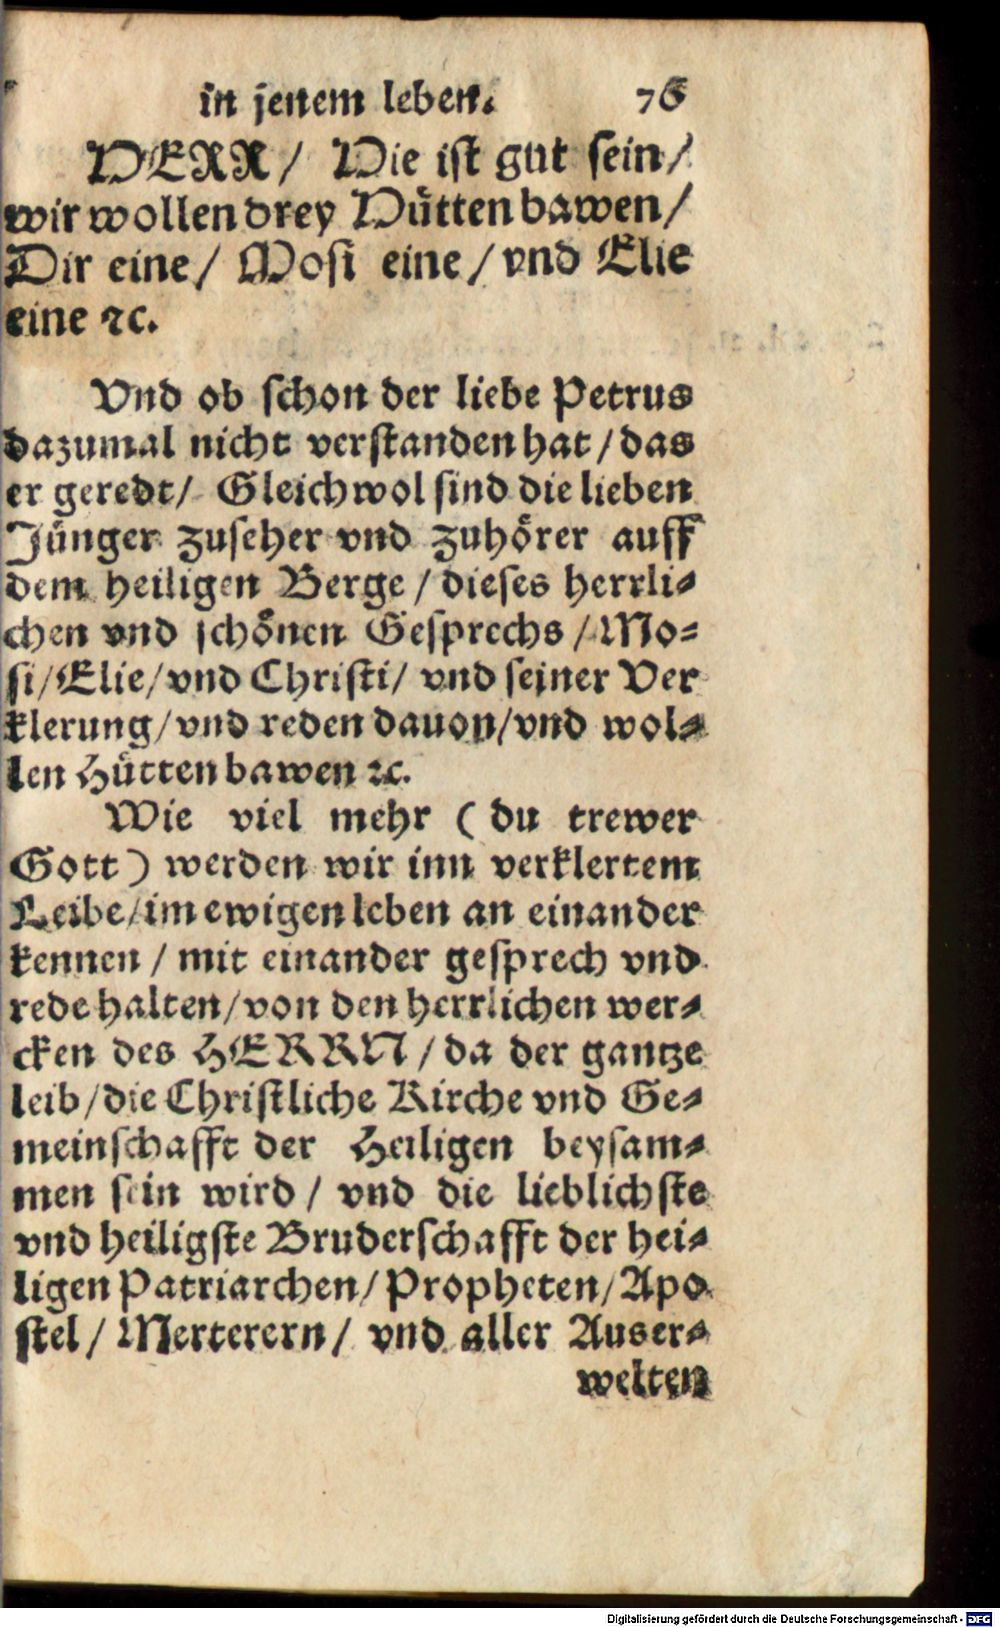 in jenem leben. 76
HERR/ Hie ist gut sein/
wir wollen drey Hütten bawen/
Dir eine/ Mosi eine/ vnd Elie
eine ꝛc.
Vnd ob schon der liebe Petrus
dazumal nicht verstanden hat/ das
er geredt/ Gleichwol sind die lieben
Jünger zuseher vnd zuhörer auff
dem heiligen Berge/ dieses herrli-
chen vnd schönen Gesprechs/ Mo-
si/ Elie/ vnd Christi/ vnd seiner Ver
klerung/ vnd reden dauon/ vnd wol-
len Hütten bawen ꝛc.
Wie viel mehr ( du trewer
Gott ) werden wir inn verklertem
Leibe/ im ewigen leben an einander
kennen/ mit einander gesprech vnd
rede halten/ von den herrlichen wer-
cken des HERRN/ da der gantze
leib/ die Christliche Kirche vnd Ge-
meinschafft der Heiligen beysam-
men sein wird/ vnd die lieblichste
vnd heiligste Bruderschafft der hei-
ligen Patriarchen/ Propheten/ Apo
stel/ Merterern/ vnd aller Auser-
welten
Digitalisierung gefördert durch die Deutsche Forschungsgemeinschaft - DFG